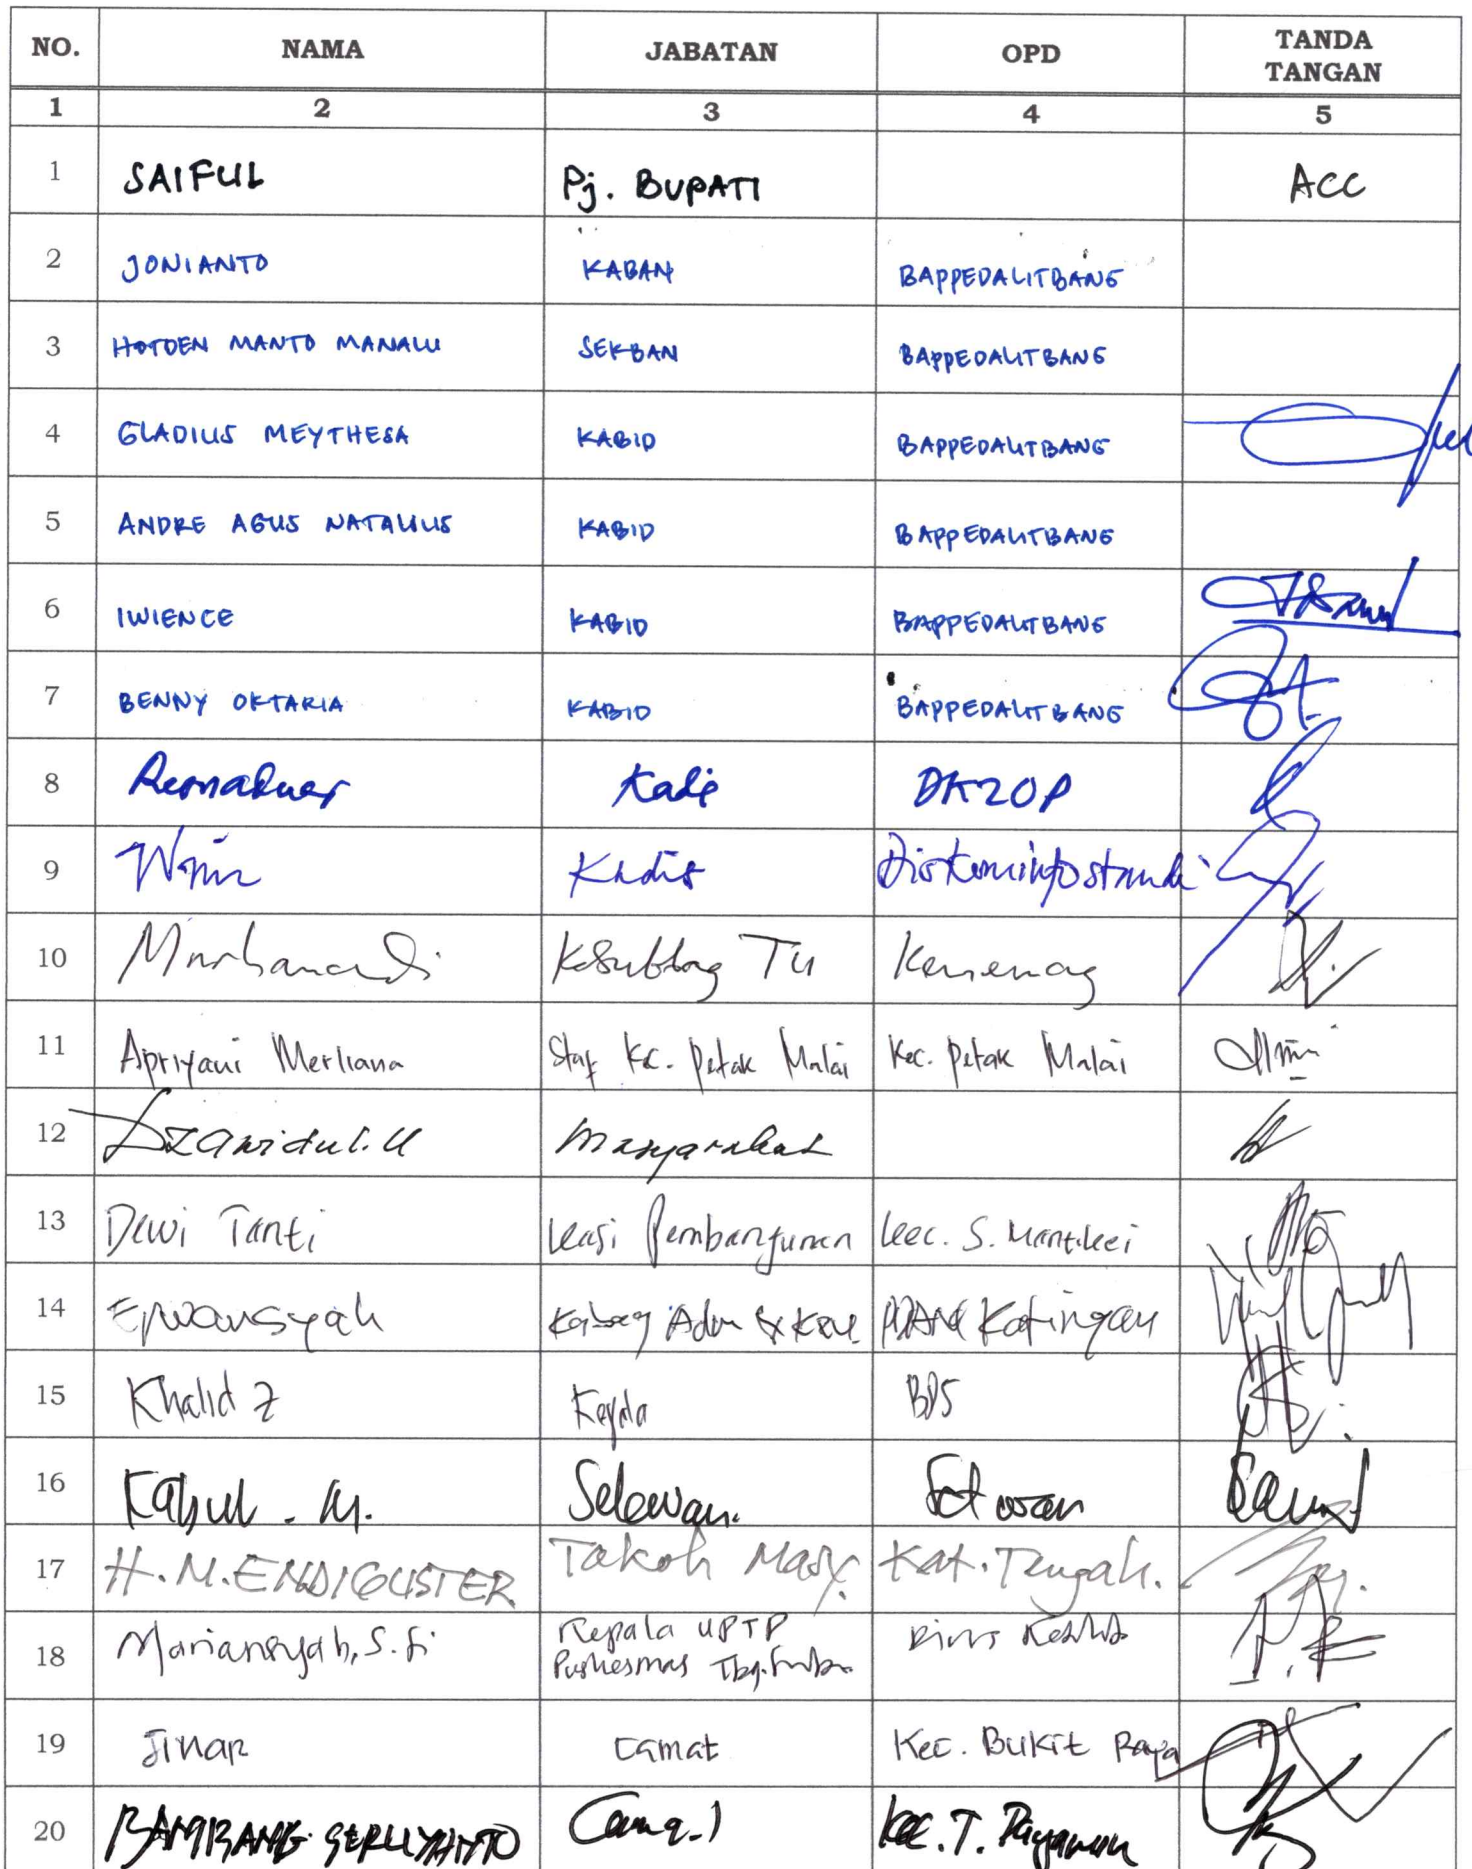 NO. NAMA JABATAN OPD TANDA TANGAN
1 2 3 4 5
1 SAIFUL Pj. BUPATI ACC
2 JONIANTO KABAN BAPPEDALITBANG
3 HOTDEN MANTO MANALU SEKBAN BAPPEDALITBANG
4 GLADIUS MEYTHESA KABID BAPPEDALITBANG
5 ANDRE AGUS NATALIUS KABID BAPPEDALITBANG
6 IWIENCE KABID BAPPEDALITBANG
7 BENNY OKTARIA KABID BAPPEDALITBANG
8 Kadis
9 Kadis Diskominfostandi
10 Kasubbag TU Kemenag
11 Apriyani Merliana Staf Kec. Petak Malai Kec. Petak Malai
12 Masyarakat
13 Dewi Tanti Kasi Pembangunan Kec. S. Mantikei
14 Erwansyah Kabag Adm & Katingan
15 Khalid Z Kepala BPS
16 Kabul . M.
17 H. M. ENDIGUSTER Tokoh Masy. Kat. Tengah.
18 Mariansyah, S. Si Kepala UPTP
Puskesmas Tbg. Dinas
19 Jinar Camat Kec. Bukit Raya
20 BAMBANG Camat Kec. T.